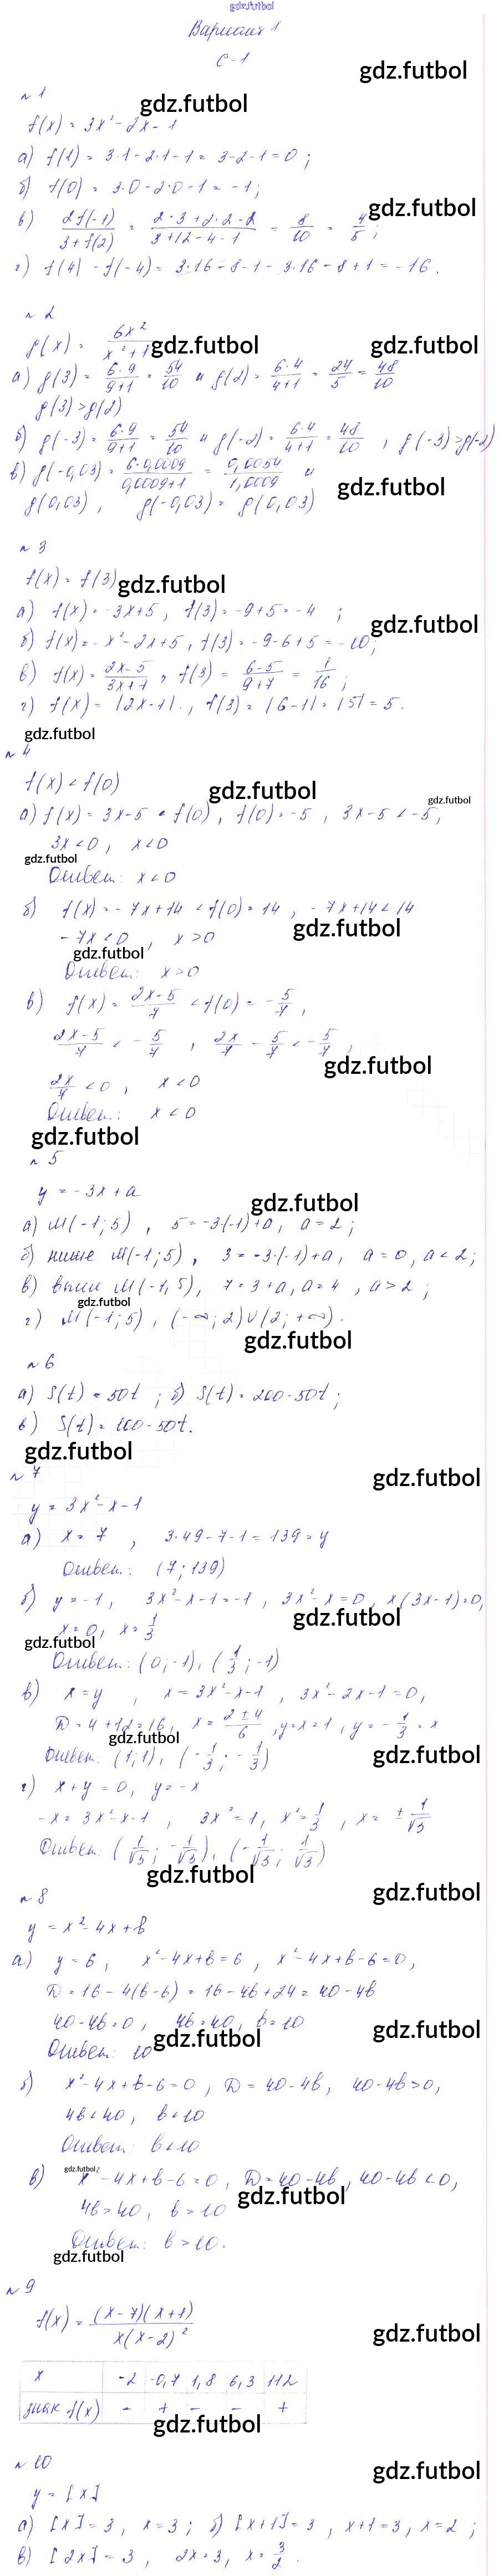 gdz.futbol
Вариант 1
С-1
gdz.futbol
№ 1
gdz.futbol
f(x) = 3x² - 2x - 1
а) f(1) = 3·1 - 2·1 - 1 = 3 - 2 - 1 = 0 ;
б) f(0) = 3·0 - 2·0 - 1 = -1 ;
gdz.futbol
в) 2f(-1)/3+f(2) = 2·3+2·2-2/3+12-4-1 = 8/10 = 4/5 ;
г) f(4) - f(-4) = 3·16 - 8 - 1 - 3·16 - 8 + 1 = -16 .
№ 2
g(x) = 6x²/x²+1
gdz.futbol
gdz.futbol
а) g(3) = 6·9/9+1 = 54/10 и g(2) = 6·4/4+1 = 24/5 = 48/10
g(3) > g(2)
б) g(-3) = 6·9/9+1 = 54/10 и g(-2) = 6·4/4+1 = 48/10 , g(-3) > g(-2)
в) g(-0,03) = 6·0,0009/0,0009+1 = 0,0054/1,0009 и
gdz.futbol
g(0,03) , g(-0,03) = g(0,03)
№ 3
f(x) = f(3)
gdz.futbol
а) f(x) = -3x+5 , f(3) = -9+5 = -4 ;
gdz.futbol
б) f(x) = -x² - 2x + 5 , f(3) = -9 - 6 + 5 = -10 ;
в) f(x) = 2x-5/3x+7 , f(3) = 6-5/9+7 = 1/16 ;
г) f(x) = |2x-1| , f(3) = |6-1| = |5| = 5 .
gdz.futbol
№ 4
f(x) < f(0)
gdz.futbol
gdz.futbol
а) f(x) = 3x-5 < f(0) , f(0) = -5 , 3x-5 < -5 ,
3x < 0 , x < 0
gdz.futbol
Ответ: x < 0
б) f(x) = -7x+14 < f(0) = 14 , -7x+14 < 14
gdz.futbol
-7x < 0 , x > 0
gdz.futbol
Ответ: x > 0
в) f(x) = 2x-5/7 < f(0) = -5/7 ,
2x-5/7 < -5/7 , 2x/7 - 5/7 < -5/7 ,
gdz.futbol
2x/7 < 0 , x < 0
Ответ: x < 0
gdz.futbol
№ 5
y = -3x + a
gdz.futbol
а) M(-1; 5) , 5 = -3·(-1)+a , a = 2 ;
б) ниже M(-1; 5) , 3 = -3·(-1)+a , a = 0 , a < 2 ;
в) выше M(-1, 5) , 7 = 3 + a , a = 4 , a > 2 ;
gdz.futbol
г) M(-1; 5) , (-∞; 2)∪(2; +∞) .
gdz.futbol
№ 6
а) S(t) = 50t ; б) S(t) = 200-50t ;
в) S(t) = 100-50t .
gdz.futbol
№ 7
gdz.futbol
y = 3x² - x - 1
а) x = 7 , 3·49 - 7 - 1 = 139 = y
Ответ: (7; 139)
б) y = -1 , 3x² - x - 1 = -1 , 3x² - x = 0 , x(3x-1) = 0 ,
gdz.futbol
x = 0 , x = 1/3
gdz.futbol
Ответ: (0; -1) , (1/3; -1)
в) x = y , x = 3x² - x - 1 , 3x² - 2x - 1 = 0 ,
D = 4+12 = 16 , x = 2±4/6 , y = x = 1 , y = -1/3 = x
gdz.futbol
Ответ: (1; 1) , (-1/3; -1/3)
gdz.futbol
г) x + y = 0 , y = -x
-x = 3x² - x - 1 , 3x² = 1 , x² = 1/3 , x = ± 1/√3
Ответ: (1/√3; -1/√3) , (-1/√3; 1/√3)
gdz.futbol
№ 8
gdz.futbol
y = x² - 4x + b
а) y = 6 , x² - 4x + b = 6 , x² - 4x + b - 6 = 0 ,
D = 16 - 4(b-6) = 16 - 4b + 24 = 40 - 4b
40 - 4b = 0 , 4b = 40 , b = 10
gdz.futbol
Ответ: 10
gdz.futbol
б) x² - 4x + b - 6 = 0 , D = 40 - 4b , 40 - 4b > 0 ,
4b < 40 , b < 10
Ответ: b < 10
gdz.futbol
в) x² - 4x + b - 6 = 0 , D = 40 - 4b , 40 - 4b < 0 ,
gdz.futbol
4b > 40 , b > 10
Ответ: b > 10 .
gdz.futbol
№ 9
f(x) = (x-7)(x+1)/x(x-2)²
gdz.futbol
x -2 -0,7 1,8 6,3 112
знак f(x) - + - - +
gdz.futbol
№ 10
gdz.futbol
y = [x]
а) [x] = 3 , x = 3 ; б) [x+1] = 3 , x+1 = 3 , x = 2 ;
в) [2x] = 3 , 2x = 3 , x = 3/2 .